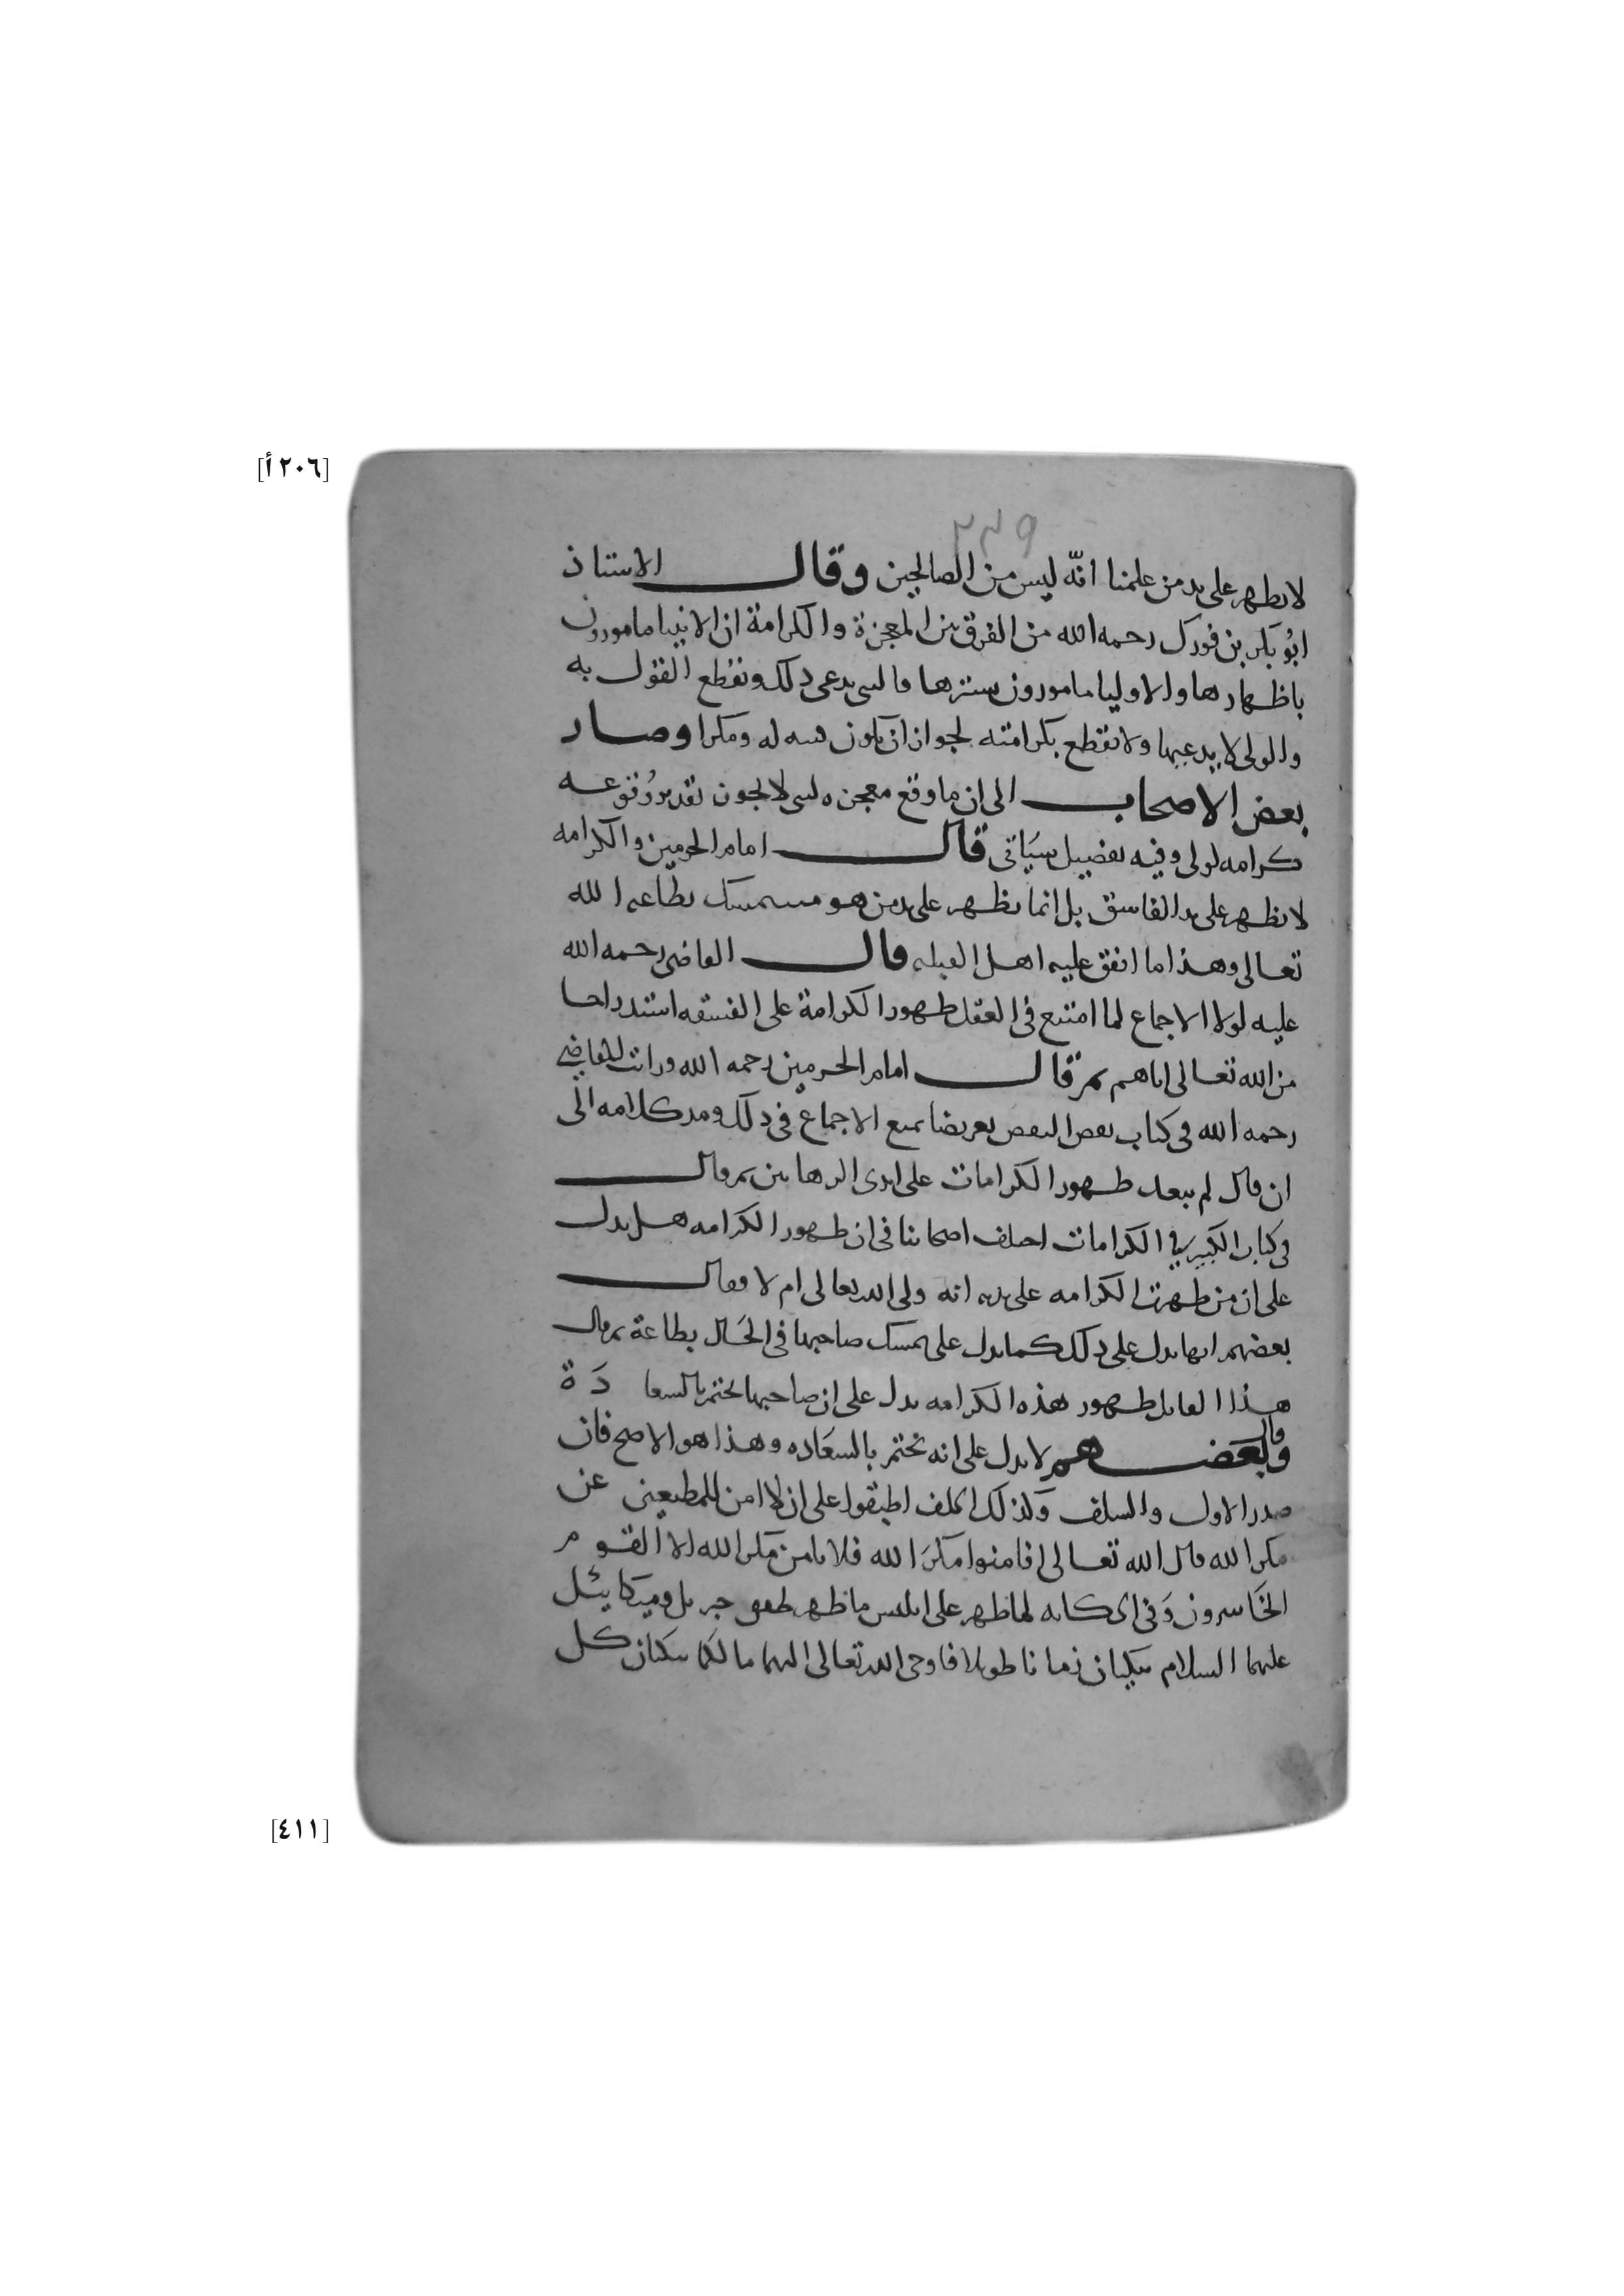 [٢٠٦ أ]
٢٣٩
لا يظهر على يد من علمنا انّه ليس من الصالحين وقال الاستاذ
ابُو بَكر بن فورك رحمه الله من الفرق بين المعجزة والكرامة ان الانبيا مامورون
باظهارها والاوليا مامورون بسترها والنبى يدعى ذلك ويقطع القول به
والولى لا يدعيها ولا يقطع بكرامته لجواز ان يكون له ومكرا وصار
بعض الاصحاب الى ان ما وقع معجزه لنبى لا يجوز تقدير وُقوعه
كرامه لولى وفيه تفصيل سيَاتى قال امام الحرمين والكرامه
لا تظهر على يد الفاسق بل انما تظهر على يد من هو متمسك بطاعه الله
تعالى وهذا ما اتفق عليه اهل القبله قال القاضى رحمه الله
عليه لولا الاجماع لما امتنع فى العقل ظهور الكرامة على الفسقه استدراجا
من الله تعالى اياهم ثم قال امام الحرمين رحمه الله ورايت للقاضى
رحمه الله فى كتاب نقض النقض تعريضا بمنع الاجماع فى ذلك ومد كلامه الى
ان قال لم يبعد ظهور الكرامات على ايدى الرهابين ثم قال
فى كتاب الكبير فى الكرامات اختلف اصحابنا فى ان ظهور الكرامه هل يدل
على ان من ظهرت الكرامه على يده انه ولى الله تعالى ام لا فقال
بعضهم انها تدل على ذلك كما تدل على تمسك صاحبها فى الحَال بطاعة ثم قال
هذا القايل ظهور هذه الكرامه يدل على ان صاحبها يختم بالسعا دَة
وقال بَعضهم لا يدل على انه يختم بالسعَاده وهذا هو الاصح فان
صدر الاول والسلف وَلذلك الخلف اطبقوا على ان لا امن للمطيعين عن
مكر الله قال الله تعالى افامنوا مكرَ الله فلا يامن مكر الله الا القوم
الخَاسرون وَفى لما ظهر على ابليس ما ظهر طفق جبريل وميكائيل
عليهما السلام يبكيان زمانا طويلا فاوحى الله تعالى اليهما ما لكما تبكيان كل
[٤١١]